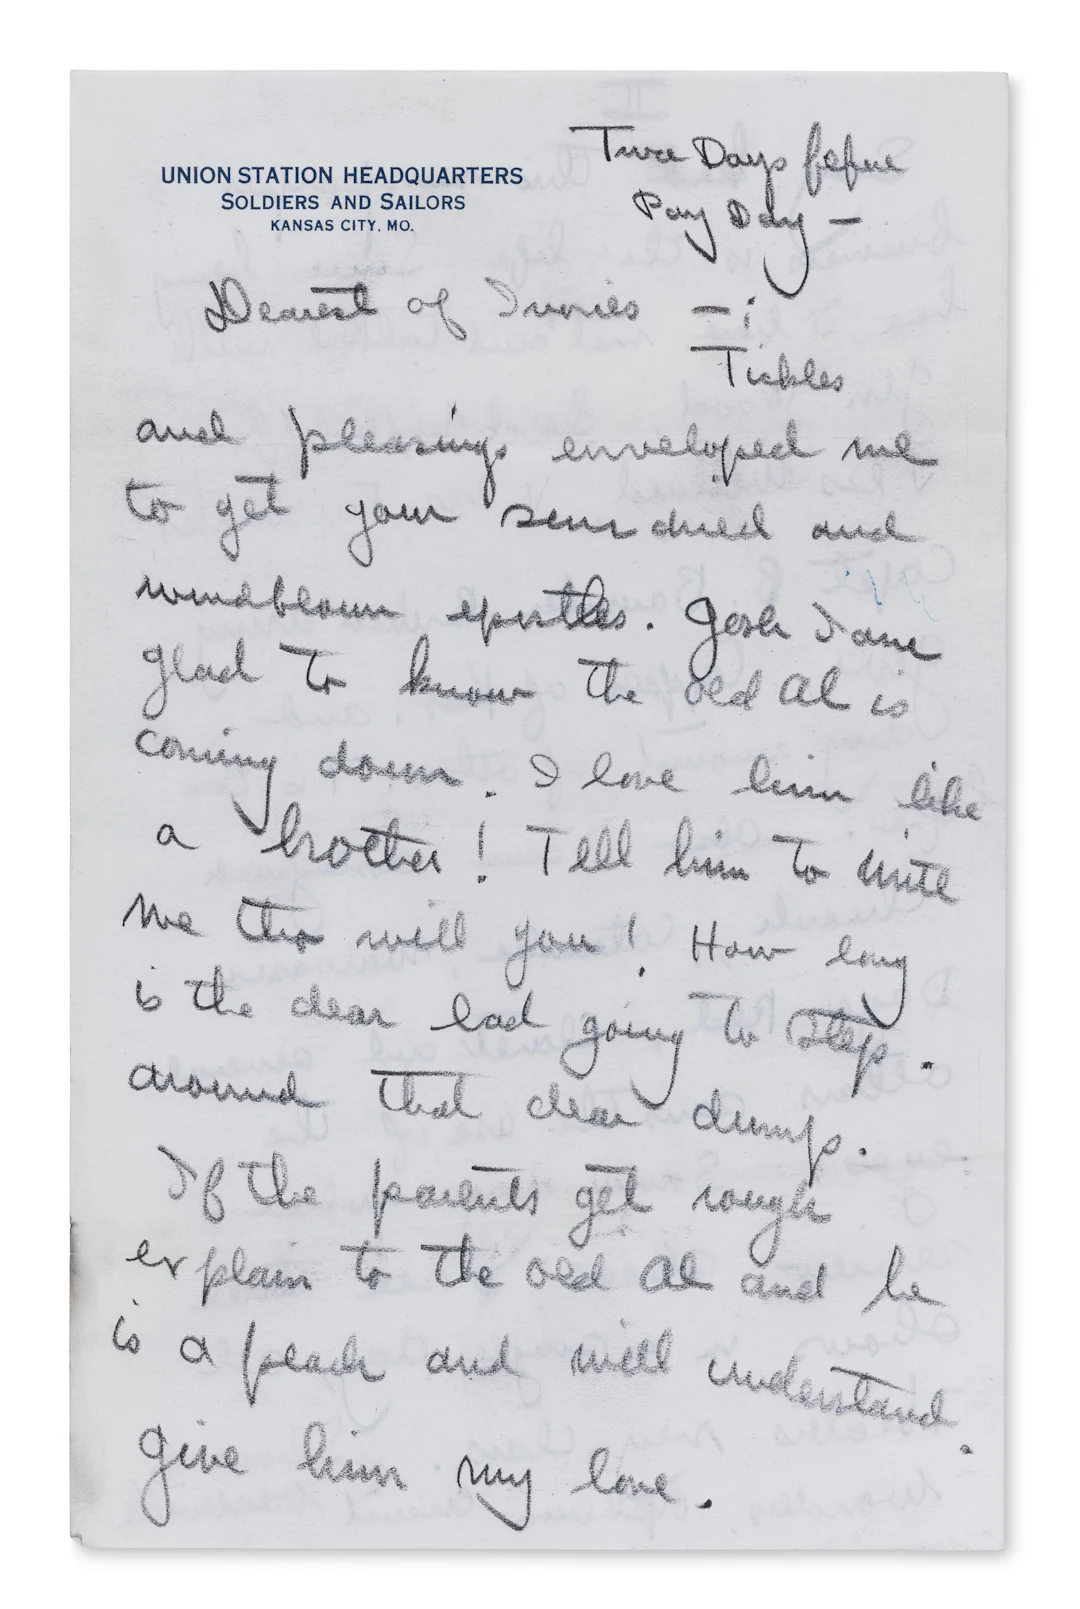 UNION STATION HEADQUARTERS
SOLDIERS AND SAILORS
KANSAS CITY, MO.
Two Days before
Pay Day —
Dearest of Ivories — ;
Tickles
and pleasings enveloped me
to get your sun dried and
windblown epistles. Gosh I am
glad to know the old Al is
coming down. I love him like
a brother! Tell him to write
me tho will you! How long
is the dear lad going to stop.
around that dear dump.
If the parents get rough
explain to the old Al and he
is a peach and will understand.
Give him my love.